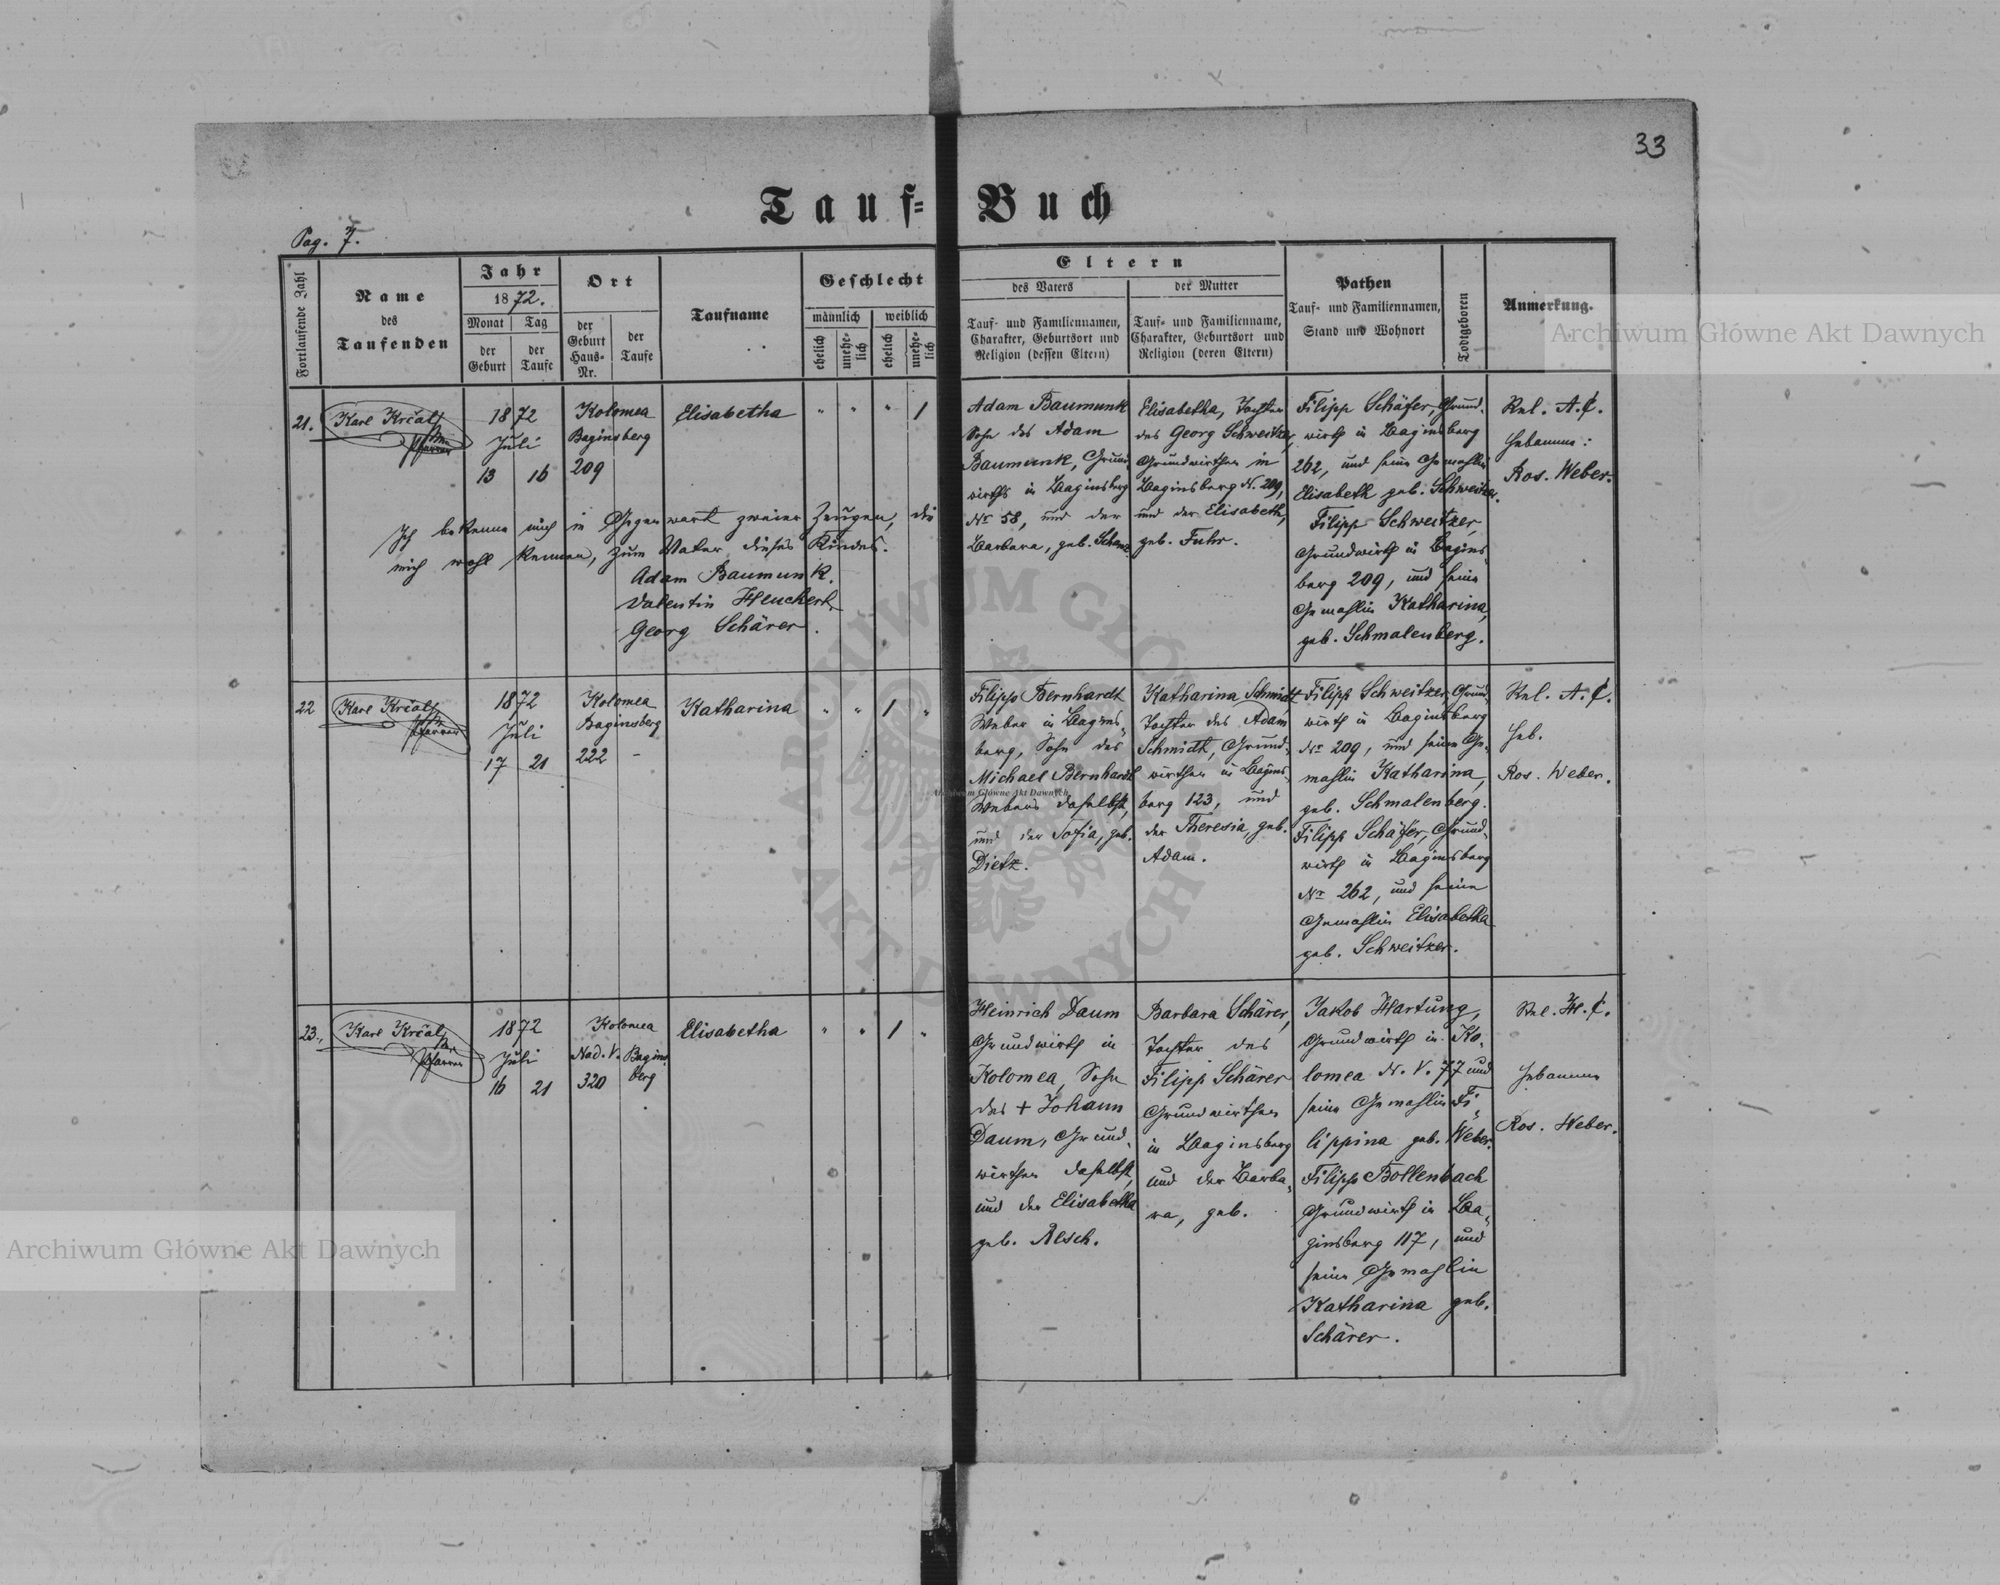 33
Tauf-Buch
Pag. 7.
Fortlaufende Zahl
Name
des
Taufenden
Jahr
1872.
Monat
Tag
der
Geburt
der
Taufe
Ort
der
Geburt
Haus-
Nr.
der
Taufe
Taufname
Geschlecht
männlich
weiblich
ehelich
unehe-
lich
ehelich
unehe-
lich
Eltern
des Vaters
der Mutter
Tauf- und Familiennamen,
Charakter, Geburtsort und
Religion (dessen Eltern)
Tauf- und Familienname,
Charakter, Geburtsort und
Religion (deren Eltern)
Pathen
Tauf- und Familiennamen,
Stand und Wohnort
Todtgeboren
Anmerkung.
21.
Karl Krčal
Pfarrer
1872
Juli
13 16
Kolomea
Baginsberg
209
Elisabetha
" " " 1
Adam Baumunk
Sohn des Adam
Baumunk, Grund
wirths in Baginsberg
Nr 58, und der
Barbara, geb. Schanz
Elisabetha, Tochter
des Georg Schweitzer,
Grundwirthen in
Baginsberg N. 209,
und der Elisabeth,
geb. Fuhr.
Filipp Schäfer, Grund-
wirth in Baginsberg
262, und seine Gemahlin
Elisabeth geb. Schweitzer.
Filipp Schweitzer,
Grundwirth in Bagins
berg 209, und seine
Gemahlin Katharina,
geb. Schmalenberg.
Rel. A. C.
Hebamme:
Ros. Weber.
Ich bekenne mich in Gegenwart zweier Zeugen, die
mich wohl kennen, zum Vater dieses Kindes.
Adam Baumunk.
Valentin Heuchert
Georg Schärer.
22
Karl Krčal
Pfarrer
1872
Juli
17 21
Kolomea
Baginsberg
222 -
Katharina
" " 1 "
Filipp Bernhardt
Weber in Bagins-
berg, Sohn des
Michael Bernhardt
Webers daselbst,
und der Sofia, geb.
Dietz.
Katharina Schmidt
Tochter des Adam
Schmidt, Grund-
wirthen in Bagins-
berg 123, und
der Theresia, geb.
Adam.
Filipp Schweitzer Grund-
wirth in Baginsberg
Nr 209, und seine Ge-
mahlin Katharina,
geb. Schmalenberg.
Filipp Schäfer, Grund-
wirth in Baginsberg
Nr 262, und seine
Gemahlin Elisabetha
geb. Schweitzer.
Rel. A. C.
Heb.
Ros. Weber.
23.
Karl Krčal
Pfarrer
1872
Juli
16 21
Kolomea
Nad. V. Bagins
320 berg
Elisabetha
" " 1 "
Heinrich Daum
Grundwirth in
Kolomea, Sohn
des + Johann
Daum, Grund-
wirthen daselbst,
und der Elisabetha
geb. Resch.
Barbara Schärer,
Tochter des
Filipp Schärer
Grundwirthen
in Baginsberg
und der Barba-
ra, geb.
Jakob Hartung,
Grundwirth in Ko-
lomea N. V. 77 und
seine Gemahlin Fi-
lippina geb. Weber.
Filipp Bollenbach
Grundwirth in Ba-
ginsberg 117, und
seine Gemahlin
Katharina geb.
Schärer.
Rel. H. C.
Hebamme
Ros. Weber.
Archiwum Główne Akt Dawnych
Archiwum Główne Akt Dawnych
Archiwum Główne Akt Dawnych